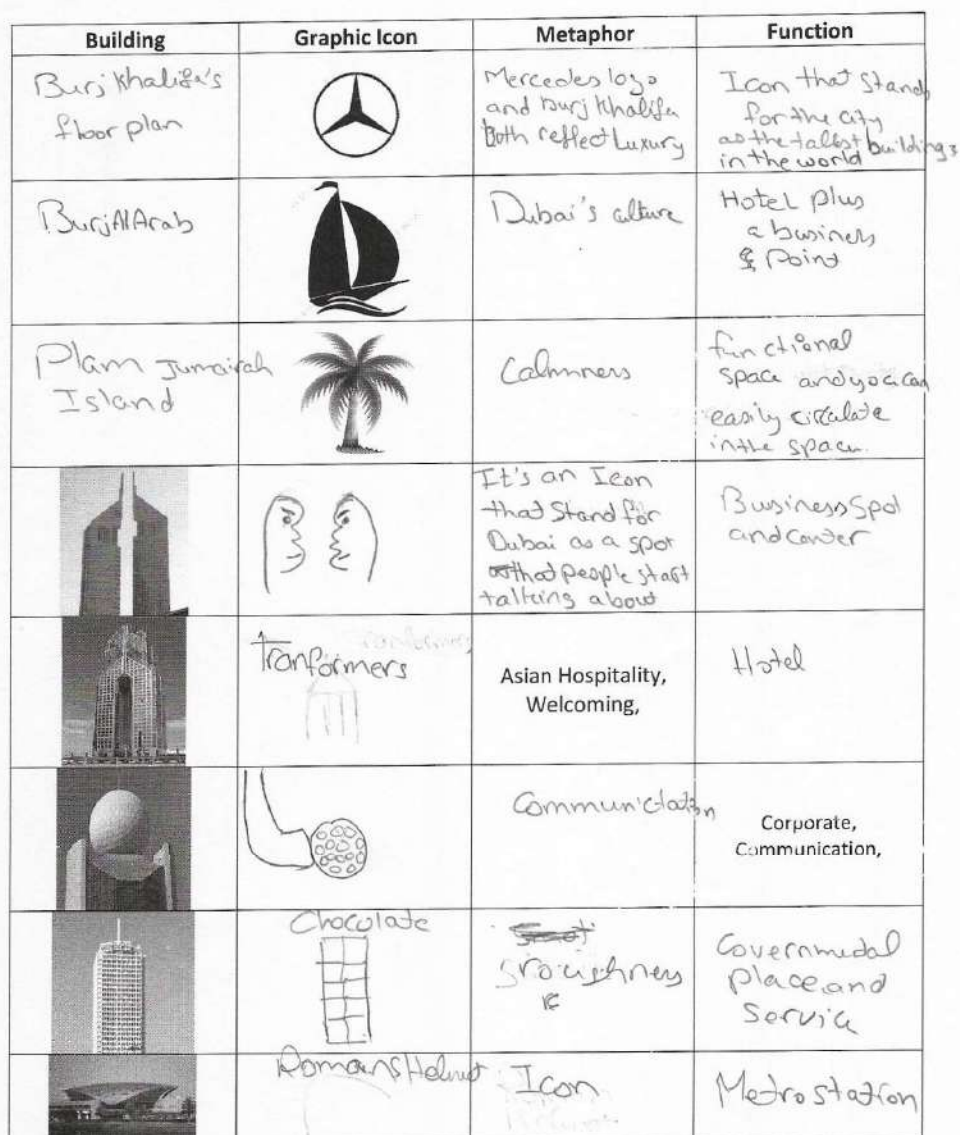 Building Graphic Icon Metaphor Function
Burj Khalifa's
floor plan
Mercedes logo
and Burj Khalifa
both reflect Luxury
Icon that stands
for the city
as the tallest buildings
in the world
Burj Al Arab
Dubai's culture
Hotel plus
a business
point
Plam Jumairah
Island
Calmness
functional
space and you can
easily circulate
in the space.
It's an Icon
that Stand for
Dubai as a spot
that people start
talking about
Business Spot
and center
Tranformers
Asian Hospitality,
Welcoming,
Hotel
Communictation
Corporate,
Communication,
Chocolate
Governmedal
place and
Service
Romans Helmet
Icon
Metro station